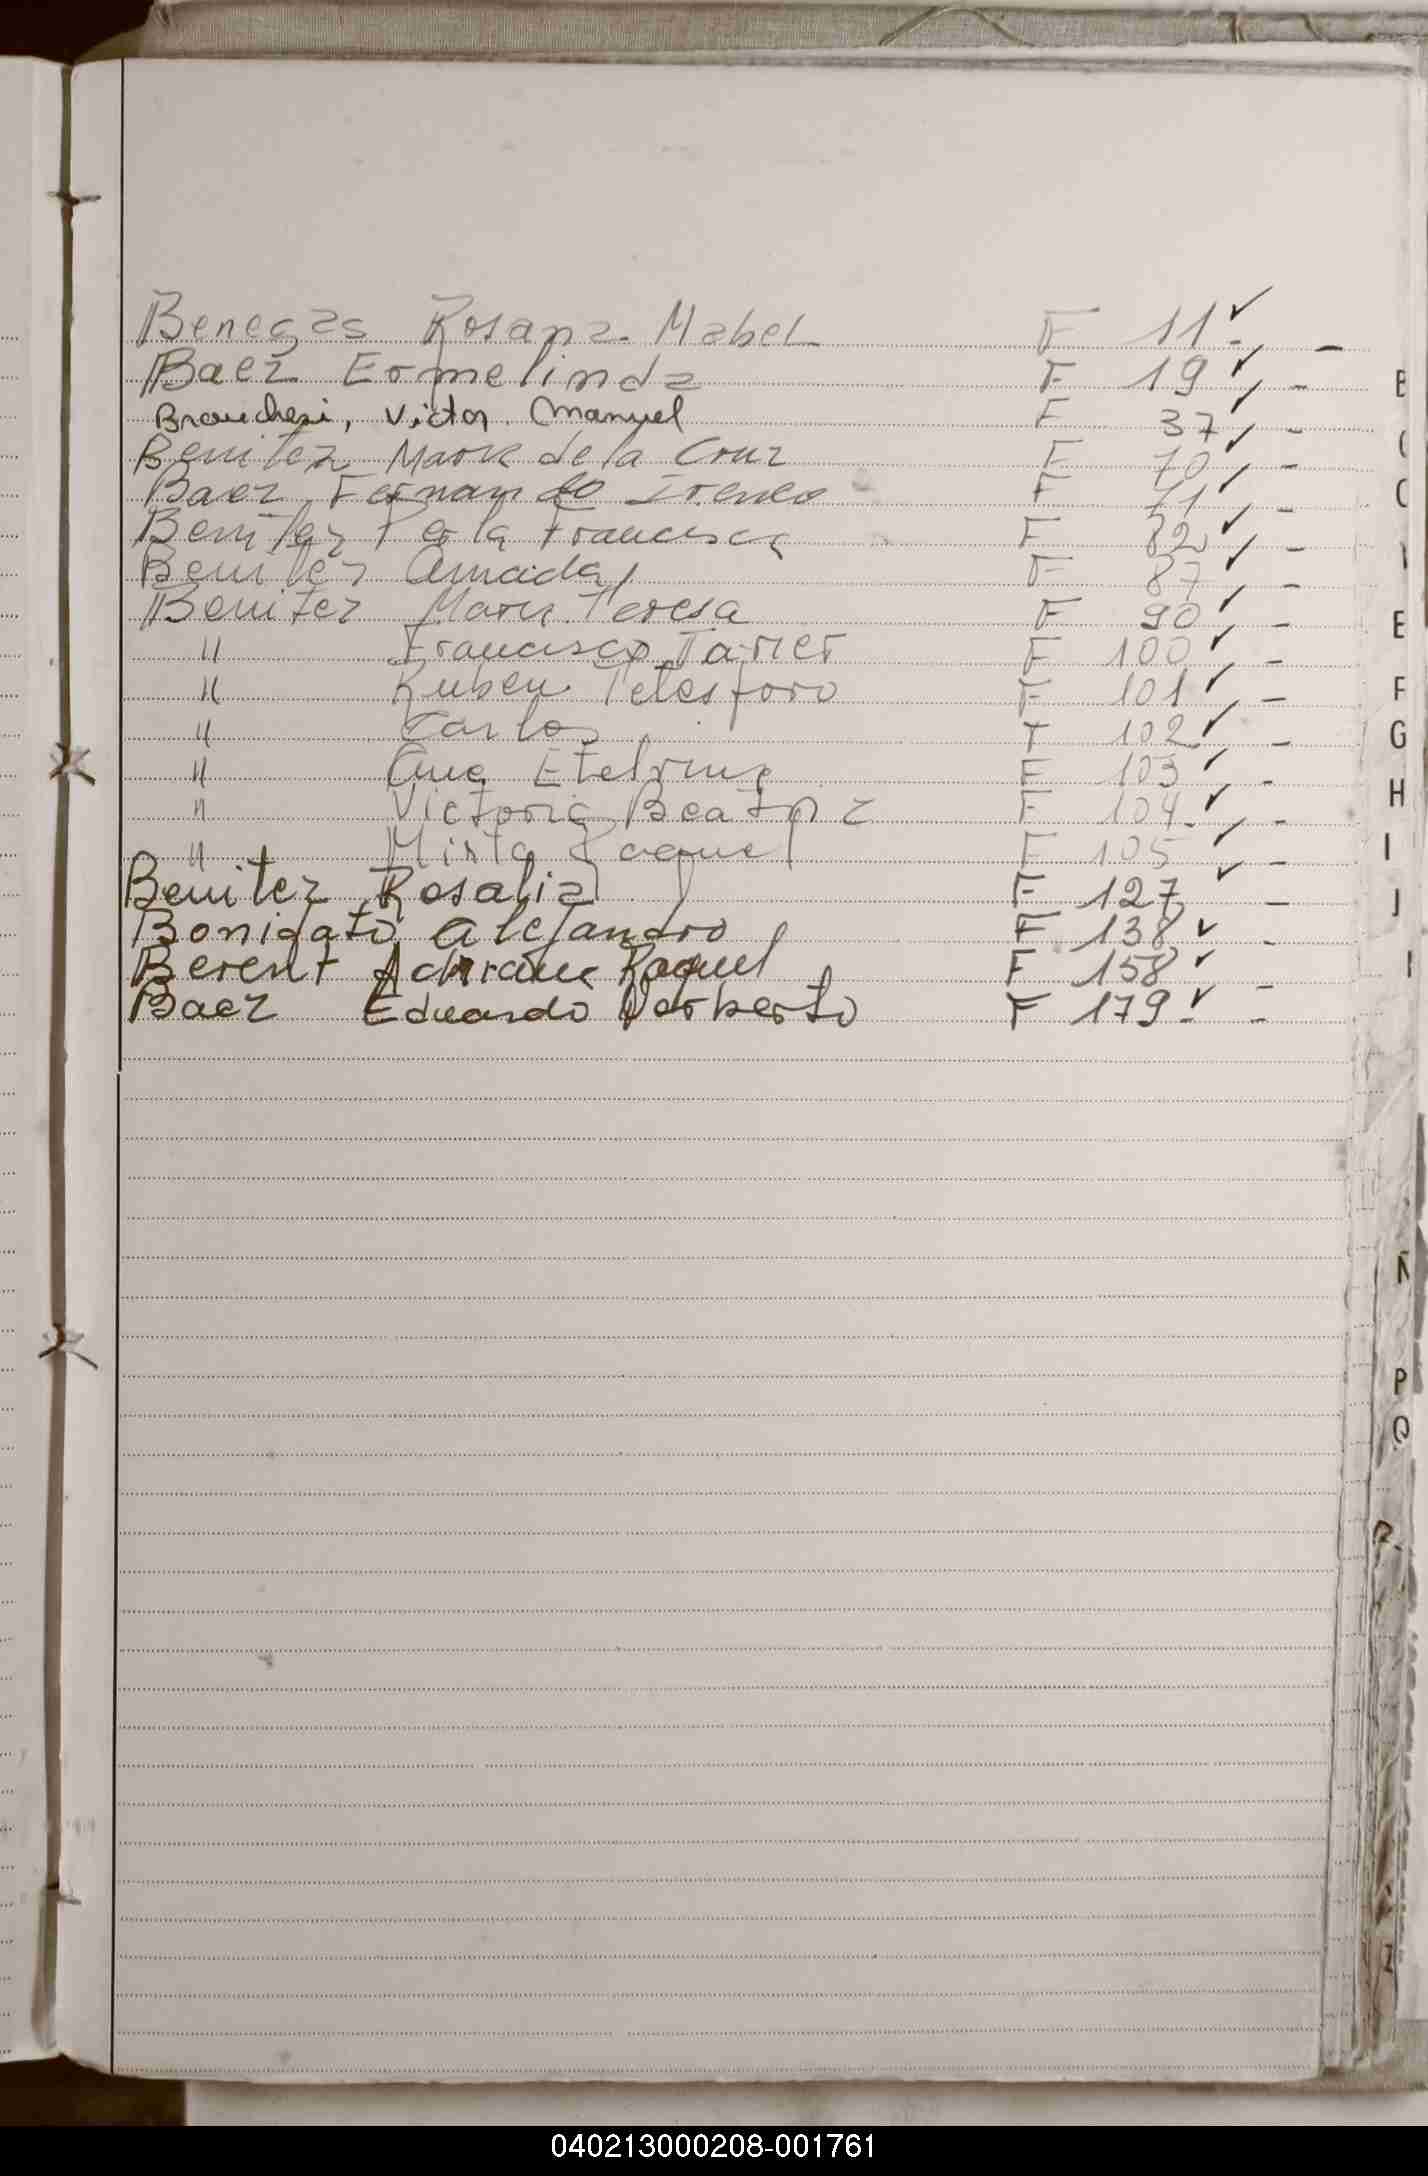 Benegas Rosana Mabel F 11 ✓ -
Baez Ermelinda F 19 ✓ -
Victor Manuel F 37 ✓ -
Benitez Maria de la Cruz F 70 ✓ -
Baez Fernando Ireneo F 71 ✓ -
Benitez Perla Francisca F 82 ✓ -
Benitez Amada F 87 ✓ -
Benitez Maria Teresa F 90 ✓ -
" Francisco Javier F 100 ✓ -
" Ruben Telesforo F 101 ✓ -
" Carlos F 102 ✓ -
" Ana Etelvina F 103 ✓ -
" Victoria Beatriz F 104 ✓ -
" Mirta Raquel F 105 ✓ -
Benitez Rosalia F 127 ✓ -
Bonigato Alejandro F 138 ✓ -
Berent Adriana Raquel F 158 ✓ -
Baez Eduardo Norberto F 179 ✓ -
E
F
G
H
I
J
Ñ
P
Q
R
Z
040213000208-001761